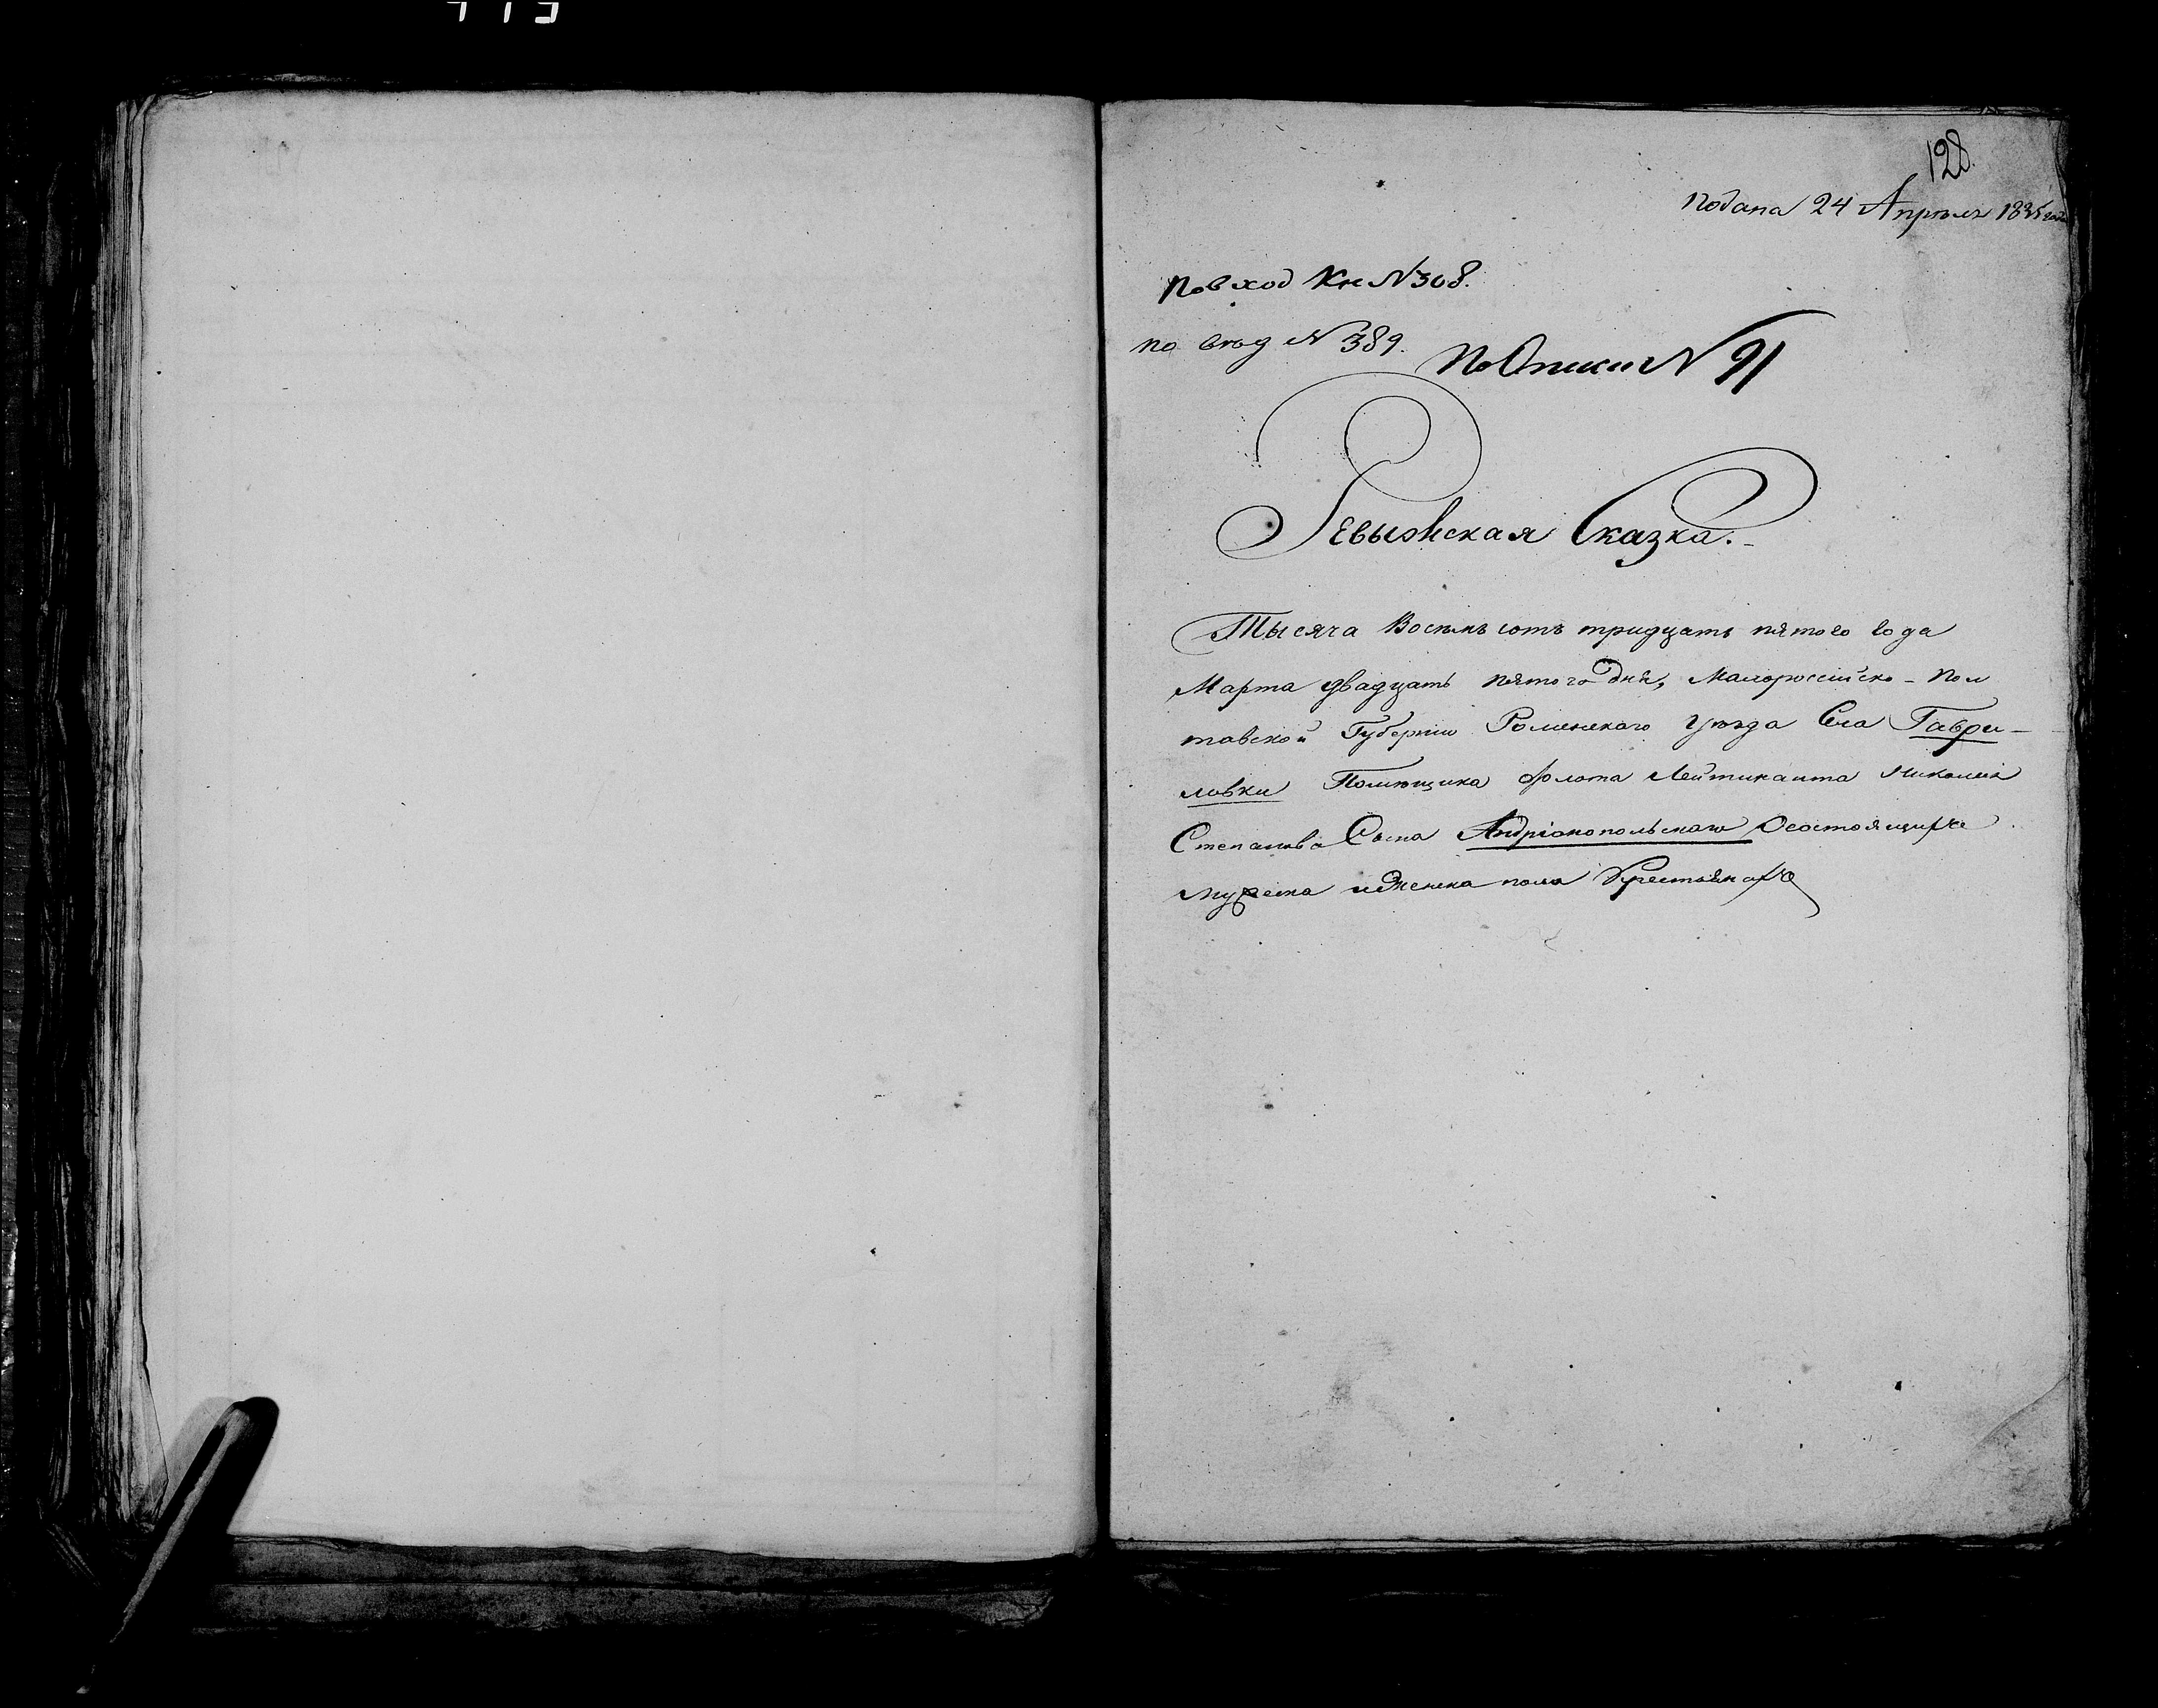 128
подана 24 Апреля 1835 года
По вход Кн N 308.
по вход N 389.
По Описи N 91
Ревыжская Сказка.
Тысяча Восемь сотъ тридцать пятого года
Марта двадцать пятого дня, Малороссійско-Пол
тавской Губерніи Роменскаго уѣзда Села Гаври-
ловки Помѣщика флота Лейтинанта Николая
Степанова Сына Андріонопольскаго Осостоящихъ
мужеска иженска пола Крестьянахъ